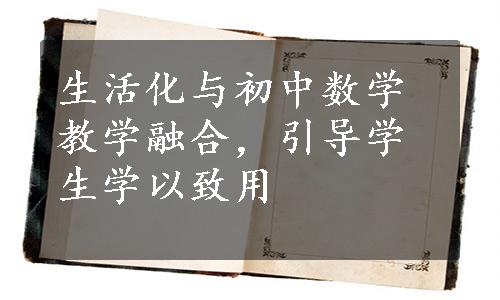 生活化与初中数学
教学融合，引导学
生学以致用